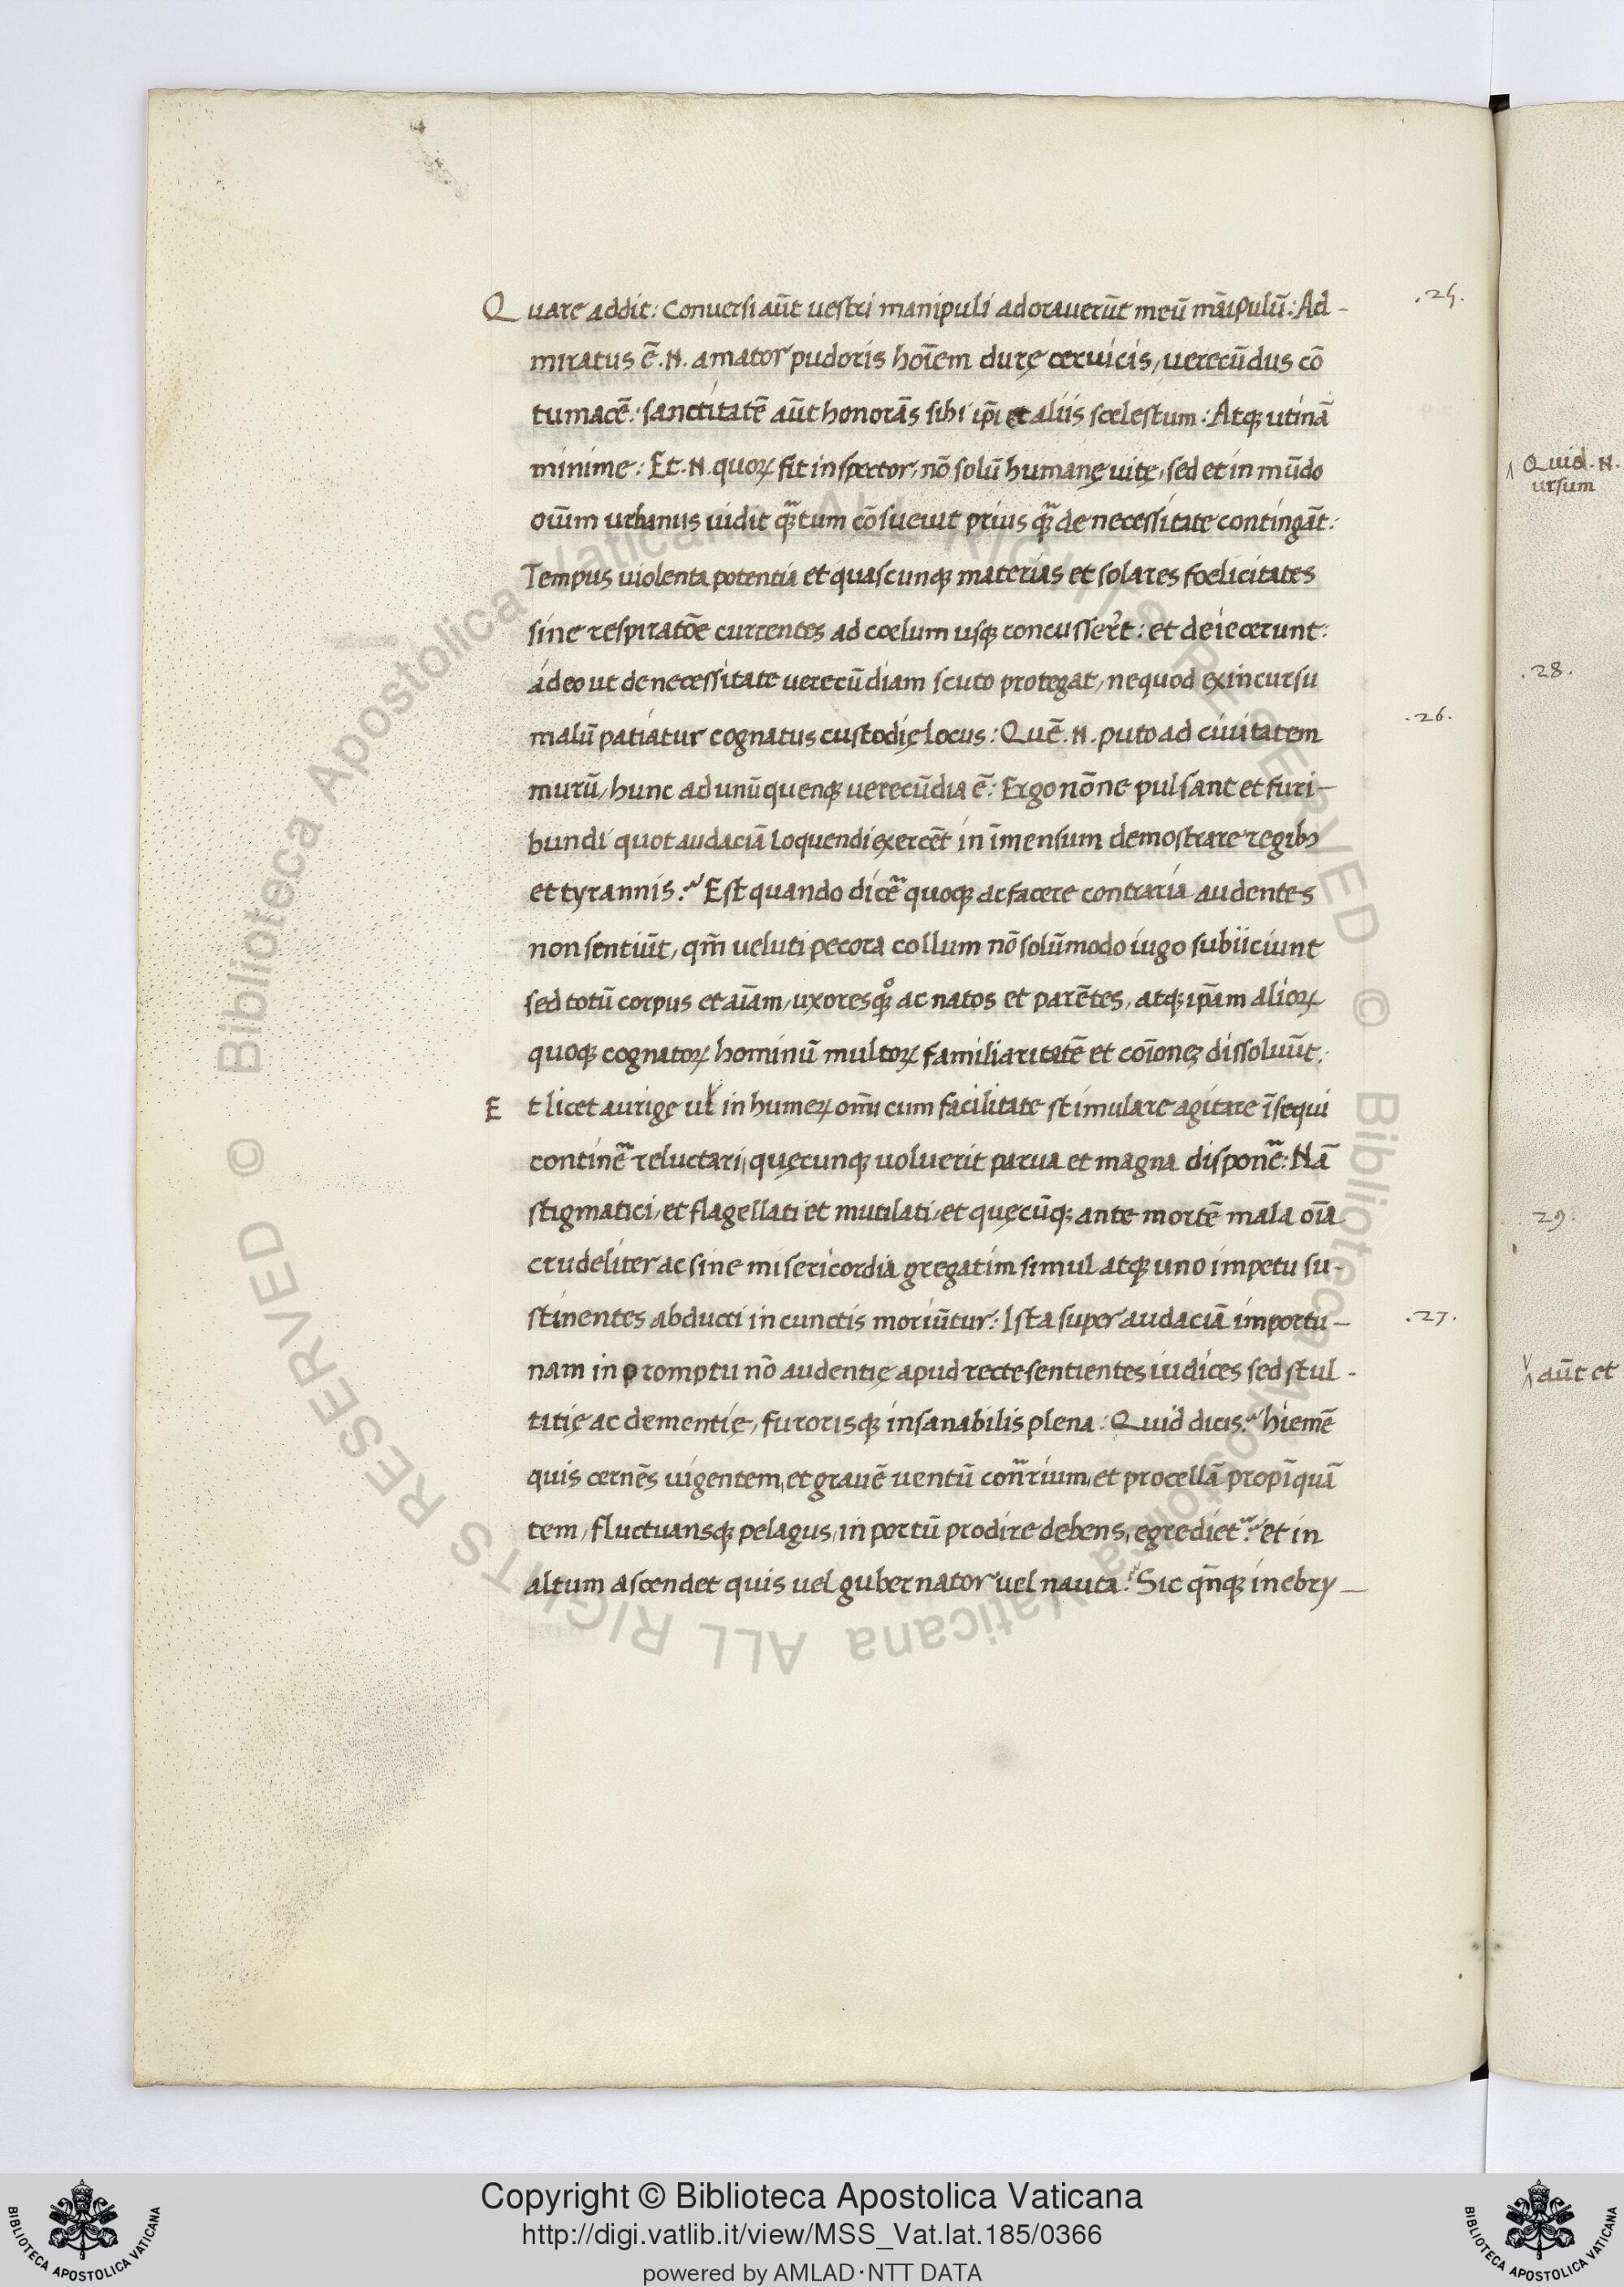 Quare addit: Conuersi aūt uestri manipuli adorauerūt meū māipulū: Ad-
.25.
miratus ē .N. amator pudoris hoīem durę ceruicis, uerecūdus cō
tumacē: sanctitatē aūt honorās sibi ip̄i et aliis scelestum: Atq; utinā
minime: Et .N. quoꝝ fit inspector, nō solū humanę uitę, sed et in mūdo
oīum urbanus uidit qᷓtum cōsueuit prius qᷓ de necessitate contingāt:
Tempus uiolenta potentia et quascunq; materias et solares foelicitates
sine respiratōe currentes ad coelum usq; concusser̄t: et deiecerunt:
ádeo ut de necessitate uerecūdiam scuto protegat, ne quod ex incursu
malū patiatur cognatus custodię locus: Quē .N. puto ad ciuitatem
.26.
murū, hunc ad unūquenq; uerecūdia ē: Ergo nōne pulsant et furi-
bundi quot audaciā loquendi exercēt in īmensum demostrare regibꝰ
et tyrannis? Est quando dicēᷓ quoq; ac facere contraria audentes
non sentiūt, qm̄ ueluti pecora collum nō solūmodo iugo subiiciunt
sed totū corpus et aīam, uxoresqͦ; ac natos et parētes, atq; ip̄am alioꝝ
quoq; cognatoꝝ hominū multoꝝ familiaritatē et coīonez dissoluūt:
Et licet aurige uł in humeꝝ om̄i cum facilitate stimulare agitare īsequi
continēᷓ reluctari, quęcunq; uoluerit parua et magna disponēᷓ: Nā
stigmatici, et flagellati et mutilati, et quęcūq; ante mortē mala oīa
crudeliter ac sine misericordia gregatim simul atq; uno impetu su-
stinentes abducti in cunctis moriūtur: Ista super audaciā importu-
.27.
nam in promptu nō audentię apud recte sentientes iudices sed stul-
titię ac dementię, furorisq; insanabilis plena: Quid dicis? hiemē
quis cernēs uigentem, et grauē uentū con̄rium, et procellā propīquā
tem, fluctuansq; pelagus, in portū prodire debens, egredietᷓ? et in
altum ascendet quis uel gubernator uel nauta? Sic qn̄q; inebry-
Quid .N.
ursum
.28.
29.
aūt et
Copyright © Biblioteca Apostolica Vaticana
http://digi.vatlib.it/view/MSS_Vat.lat.185/0366
powered by AMLAD·NTT DATA
BIBLIOTECA APOSTOLICA VATICANA
BIBLIOTECA APOSTOLICA VATICANA
© Biblioteca Apostolica Vaticana ALL RIGHTS RESERVED
© Biblioteca Apostolica Vaticana ALL RIGHTS RESERVED